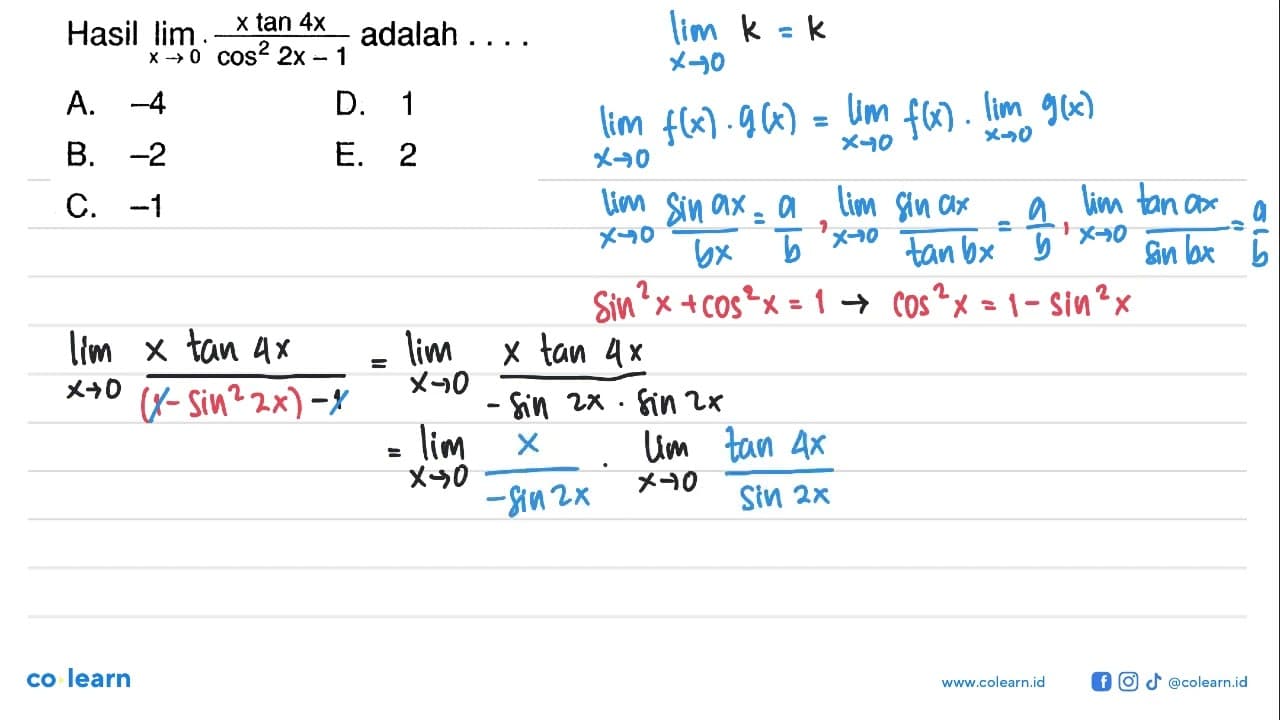 Hasil lim x→0 x tan 4x / cos² 2x – 1 adalah . . . .
A. –4
D. 1
B. –2
E. 2
C. –1
lim x→0 k = k
lim x→0 f(x) . g(x) = lim x→0 f(x) . lim x→0 g(x)
lim x→0 sin ax / bx = a/b , lim x→0 sin ax / tan bx = a/b , lim x→0 tan ax / sin bx = a/b
sin²x + cos²x = 1 → cos²x = 1 - sin²x
lim x→0 x tan 4x / (1 - sin² 2x) - 1 = lim x→0 x tan 4x / - sin 2x . sin 2x
= lim x→0 x / -sin 2x . lim x→0 tan 4x / sin 2x
co learn
www.colearn.id
@colearn.id